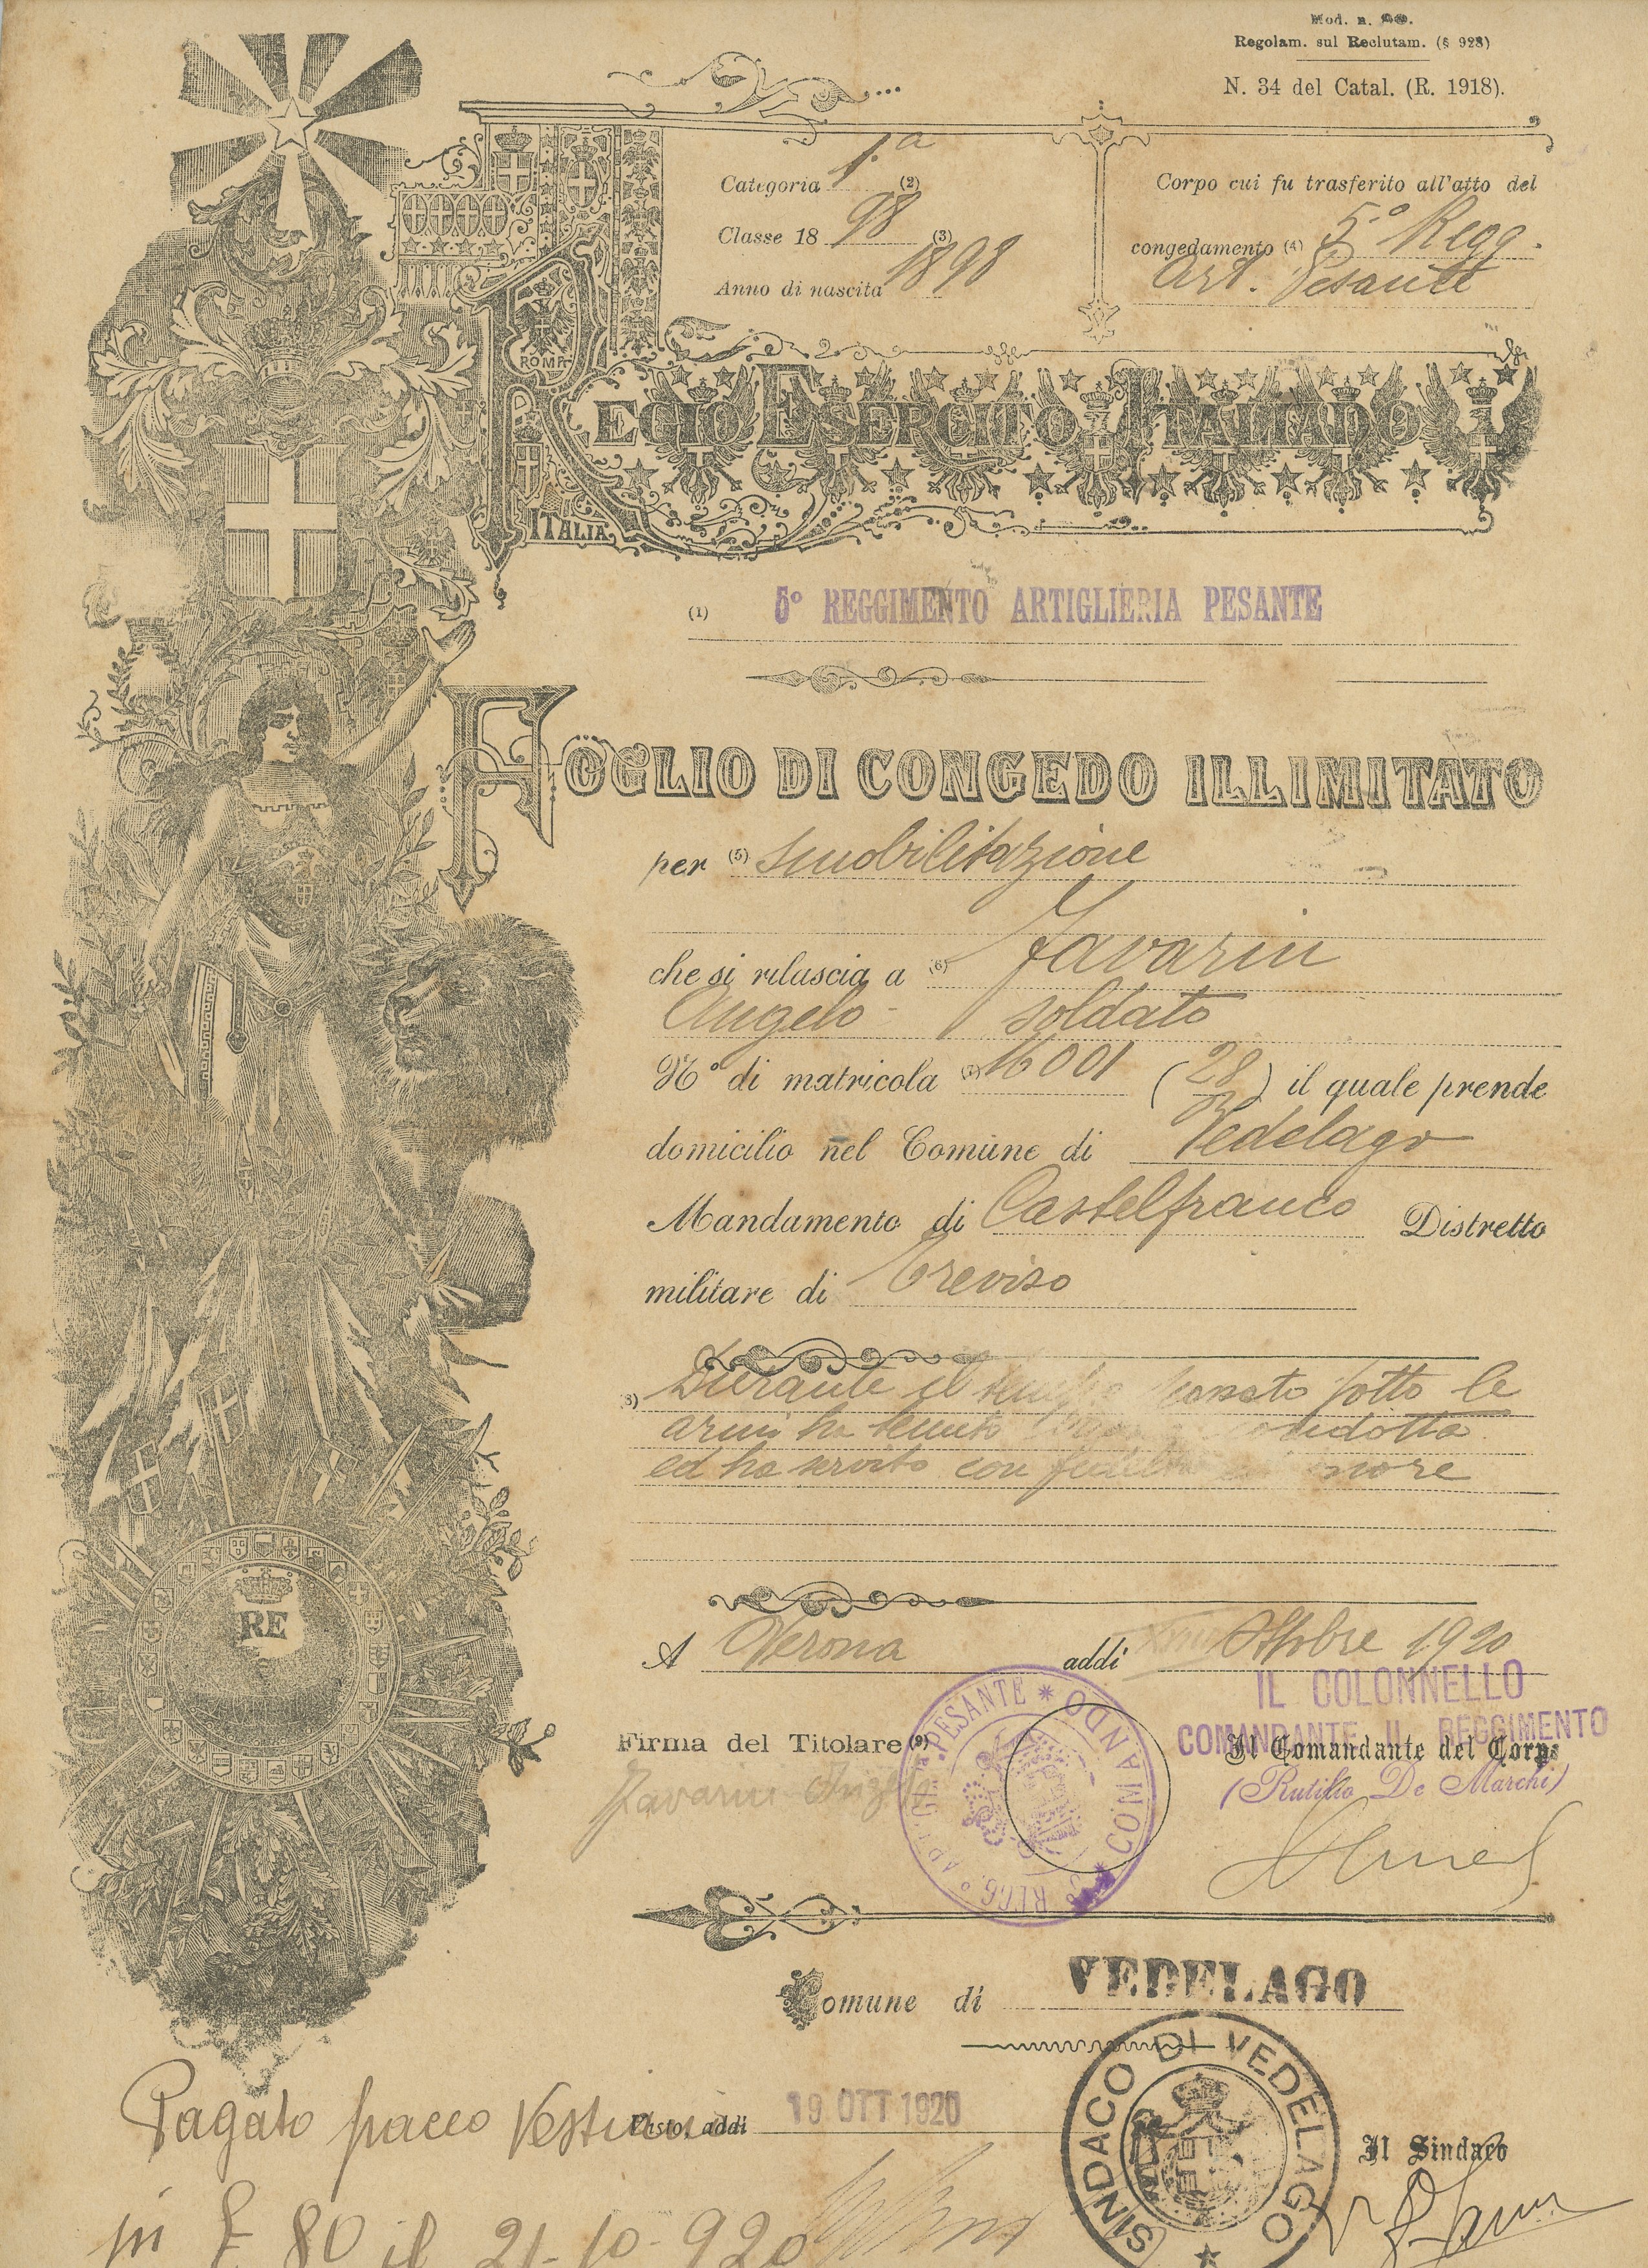 Regolam. sul Reclutam. (§ 928)
N. 34 del Catal. (R. 1918).
Categoria 1.ª (2)
Classe 18 98 (3)
Anno di nascita 1898
Corpo cui fu trasferito all'atto del
congedamento (4) 5.° Regg.
Art. Pesante
ROMA
REGIO ESERCITO ITALIANO
ITALIA
(1) 5° REGGIMENTO ARTIGLIERIA PESANTE
FOGLIO DI CONGEDO ILLIMITATO
per (5) smobilitazione
che si rilascia a (6) Favarin
Angelo - soldato
N° di matricola 16001 (28) il quale prende
domicilio nel Comune di Vedelago
Mandamento di Castelfranco Distretto
militare di Treviso
Durante il tempo passato sotto le
armi ha tenuto condotta
ed ha servito con fedeltà ed onore
RE
A Verona addì Ottobre 1920
IL COLONNELLO
COMANDANTE IL REGGIMENTO
Firma del Titolare (9)
Il Comandante del Corpo
(Rutilio De Marchi)
Favarin Angelo
5° REGG.° ART.GLIA PESANTE * COMANDO *
Comune di VEDELAGO
SINDACO DI VEDELAGO
Pagato pacco Vestiario
Visto, addì 19 OTT 1920
Il Sindaco
in £ 80 il 21-10-920